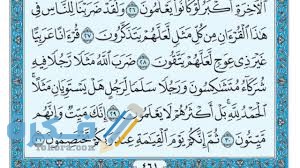 ٱلْأَخِرَةِ أَكْبَرُ لَوْ كَانُوا۟ يَعْلَمُونَ ۝٢٦ وَلَقَدْ ضَرَبْنَا لِلنَّاسِ فِى
هَٰذَا ٱلْقُرْءَانِ مِن كُلِّ مَثَلٍ لَّعَلَّهُمْ يَتَذَكَّرُونَ ۝٢٧ قُرْءَانًا عَرَبِيًّا
غَيْرَ ذِى عِوَجٍ لَّعَلَّهُمْ يَتَّقُونَ ۝٢٨ ضَرَبَ ٱللَّهُ مَثَلًا رَّجُلًا فِيهِ
شُرَكَآءُ مُتَشَٰكِسُونَ وَرَجُلًا سَلَمًا لِّرَجُلٍ هَلْ يَسْتَوِيَانِ مَثَلًا
ٱلْحَمْدُ لِلَّهِ بَلْ أَكْثَرُهُمْ لَا يَعْلَمُونَ ۝٢٩ إِنَّكَ مَيِّتٌ وَإِنَّهُم
مَّيِّتُونَ ۝٣٠ ثُمَّ إِنَّكُمْ يَوْمَ ٱلْقِيَٰمَةِ عِندَ رَبِّكُمْ تَخْتَصِمُونَ ۝٣١
٤٦١